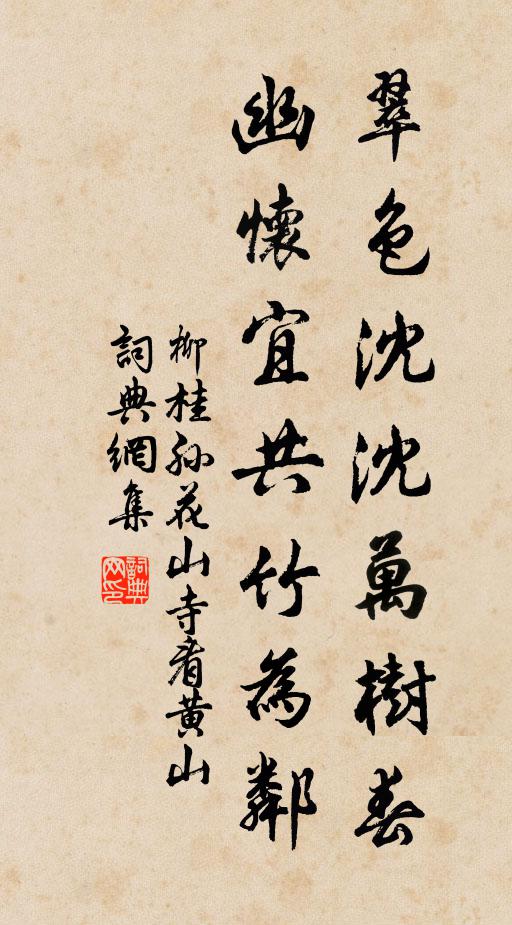 翠色沈沈萬樹春
幽懷宜共竹為鄰
柳桂孫花山寺看黃山
詞典網集
詞典网印